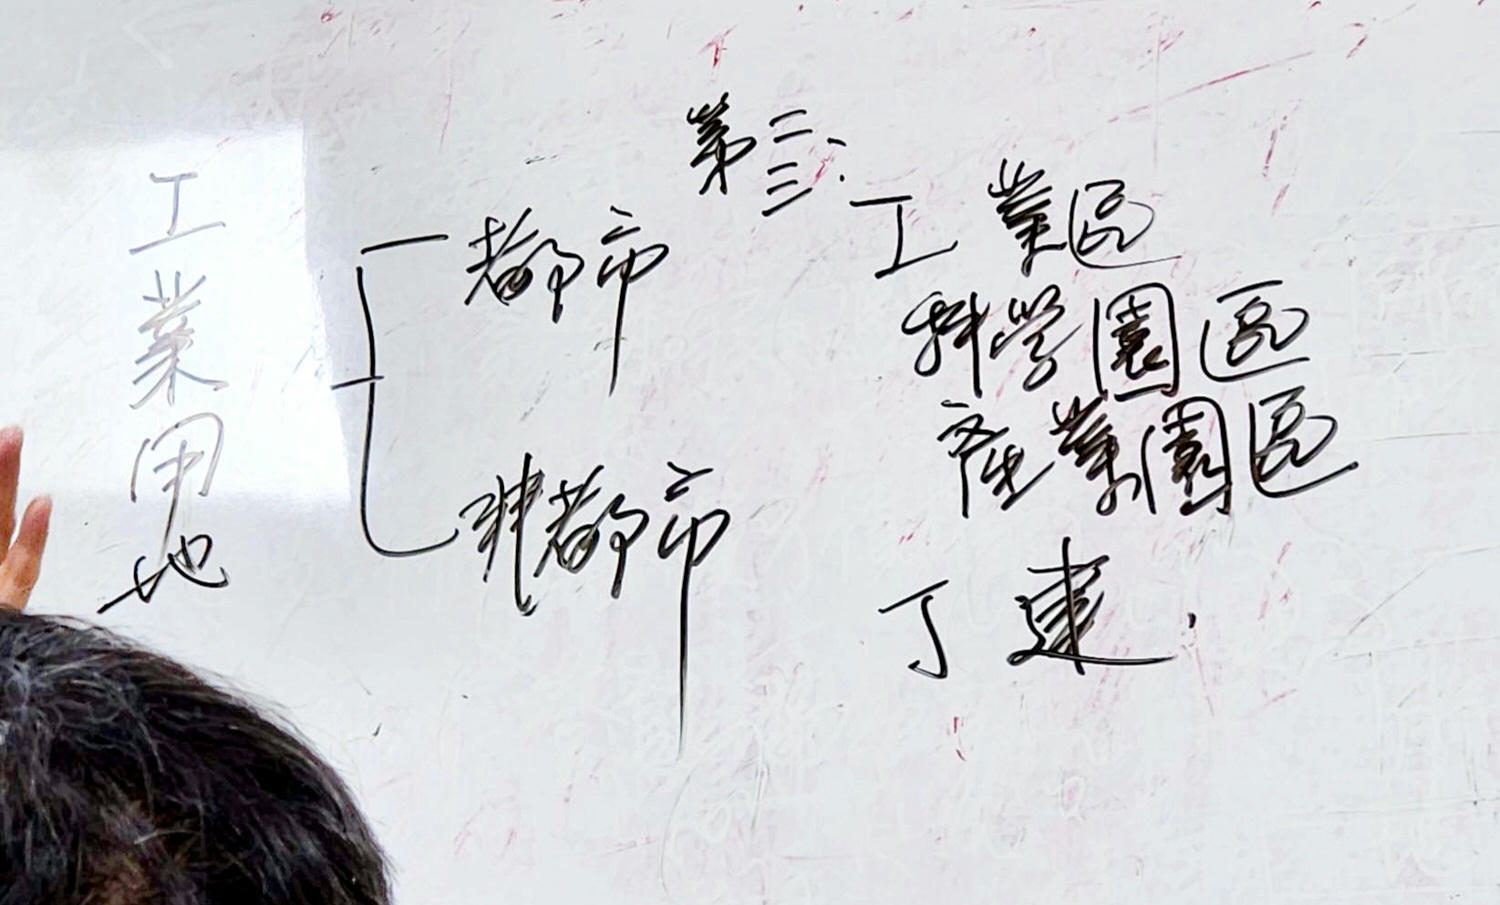 工業用地
第二、三.
都市
工業區
科學園區
產業園區
非都市
丁建.